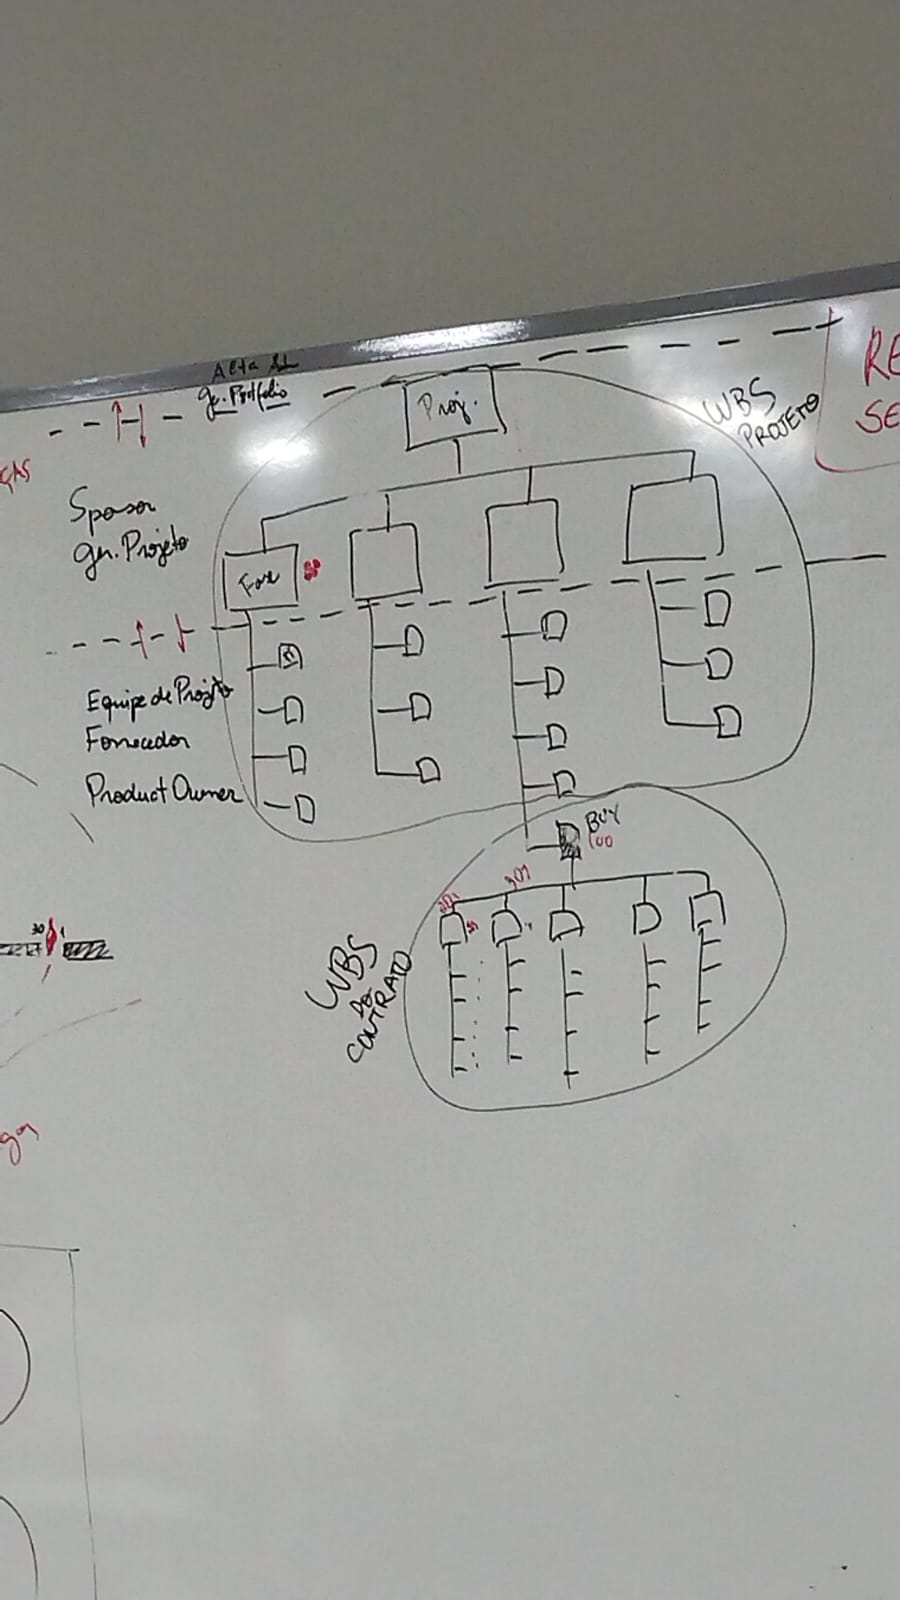 Alta
Ge. Portfolio
Proj.
WBS
PROJETO
RE
SE
ÇAS
Sposor
Ger. Projeto
Fase
Equipe de Projeto
Fornecedor
Product Owner
BUY
100
30%
WBS
DO
CONTRATO
30